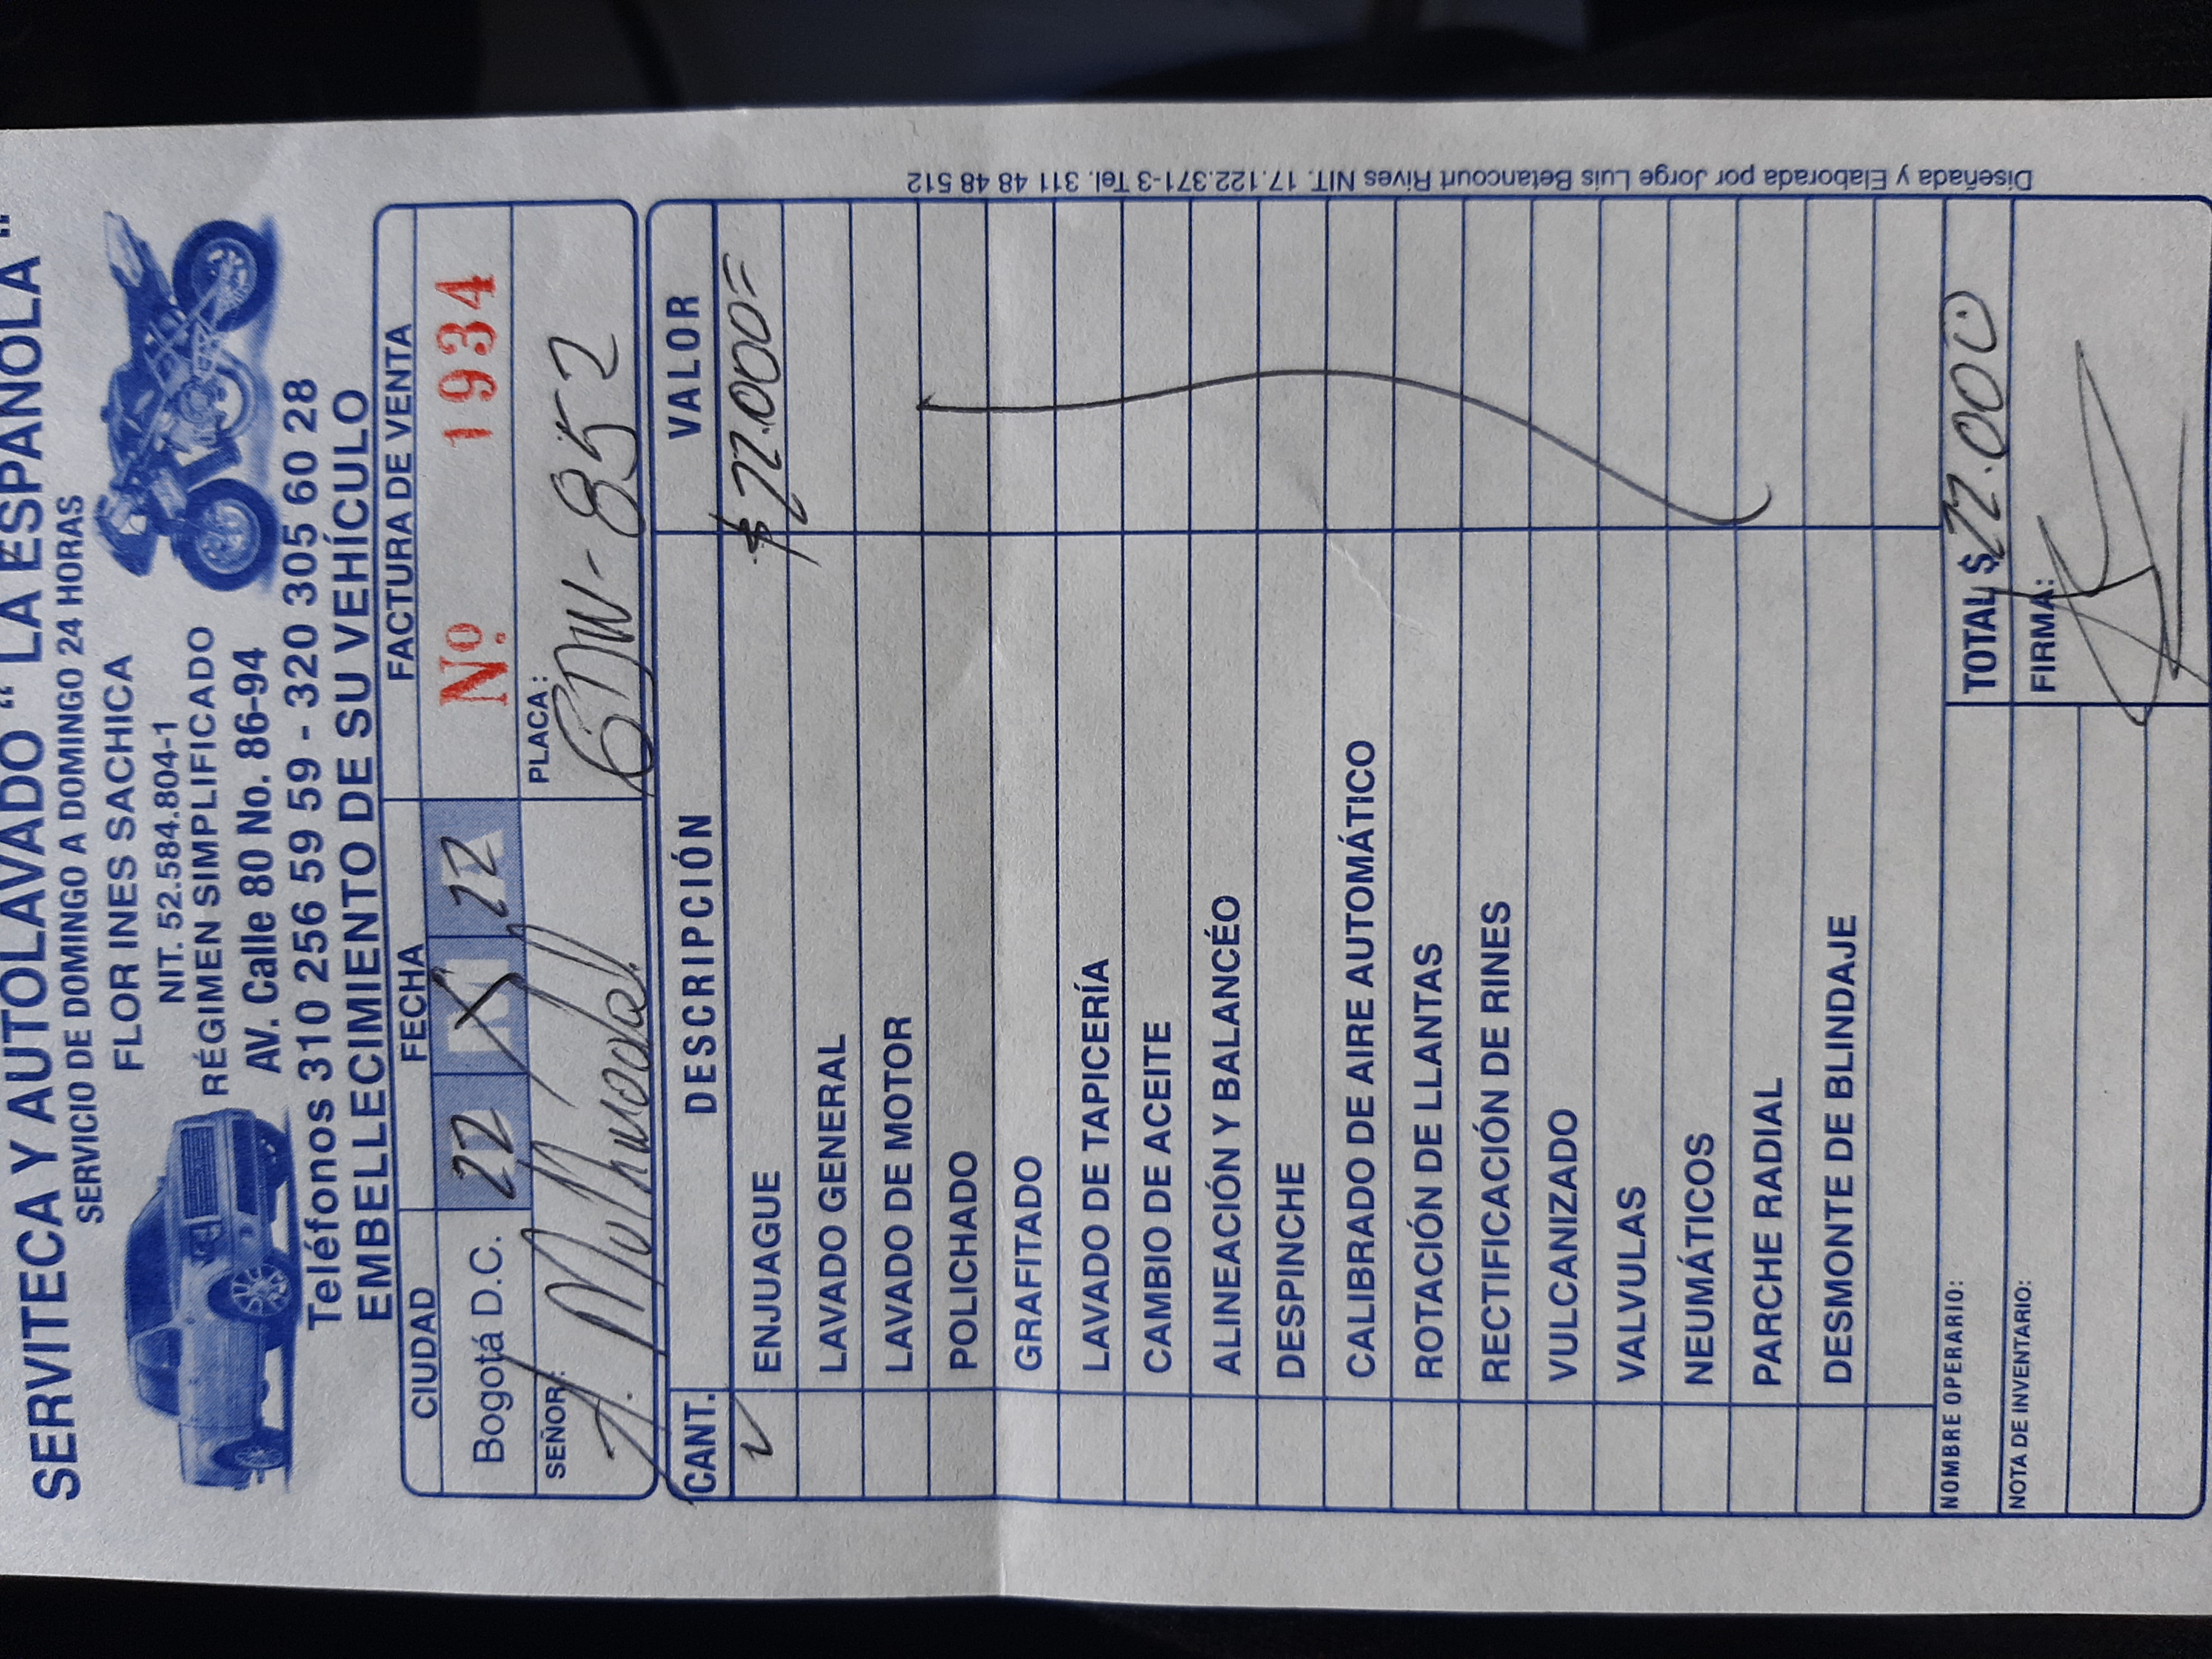 SERVITECA Y AUTOLAVADO " LA ESPAÑOLA "
SERVICIO DE DOMINGO A DOMINGO 24 HORAS
FLOR INES SACHICA
NIT. 52.584.804-1
RÉGIMEN SIMPLIFICADO
AV. Calle 80 No. 86-94
Teléfonos 310 256 59 59 - 320 305 60 28
EMBELLECIMIENTO DE SU VEHÍCULO
CIUDAD FECHA FACTURA DE VENTA
Bogotá D.C. 22 X 22 Nº. 1934
SEÑOR: PLACA:
-852
CANT. DESCRIPCIÓN VALOR
ENJUAGUE $22.000=
LAVADO GENERAL
LAVADO DE MOTOR
POLICHADO
GRAFITADO
LAVADO DE TAPICERÍA
CAMBIO DE ACEITE
ALINEACIÓN Y BALANCÉO
DESPINCHE
CALIBRADO DE AIRE AUTOMÁTICO
ROTACIÓN DE LLANTAS
RECTIFICACIÓN DE RINES
VULCANIZADO
VALVULAS
NEUMÁTICOS
PARCHE RADIAL
DESMONTE DE BLINDAJE
NOMBRE OPERARIO: TOTAL $ 22.000
NOTA DE INVENTARIO: FIRMA:
Diseñada y Elaborada por Jorge Luis Betancourt Rives NIT. 17.122.371-3 Tel. 311 48 48 512